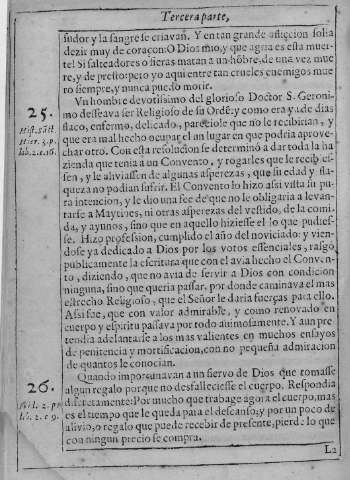 Tercera parte,
sudor y la sangre se criavan. Y en tan grande aflicçion solia
dezir muy de coraçon: O Dios mio, y que agria es esta muer-
te! Si salteadores o fieras matan a un hõbre, de una vez mue
re, y de presto: pero yo aqui entre tan crueles enemigos mue
ro siempre, y nunca puedo morir.
25.
Vn hombre devotissimo del glorioso Doctor S. Geroni-
mo desseava ser Religioso de su Ordẽ: y como era ya de dias
flaco, enfermo, delicado, pareciole que no le recibirian, y
que era mal hecho ocupar el un lugar en que podria aprove-
char otro. Con esta resolucion se determinò a dar toda la ha
zienda que tenia a un Convento, y rogarles que le recibies-
sen, y le aliviassen de algunas asperezas, que su edad y fla-
queza no podian sufrir. El Convento lo hizo assi vista su pu
ra intencion, y le dio una fee de que no le obligaria a levan-
tarse a Maytines, ni otras asperezas del vestido, de la comi-
da, y ayunos, sino que en aquello hiziesse el lo que pudies-
se. Hizo profession, cumplido el año del noviciado: y vien-
dose ya dedicado a Dios por los votos essenciales, rasgò
publicamente la escritura que con el avia hecho el Conven-
to, diziendo, que no avia de servir a Dios con condicion
ninguna, sino que queria passar, por donde caminava el mas
estrecho Religioso, que el Señor le daria fuerças para ello.
Assi fue, que con valor admirable, y como renovado en
cuerpo y espiritu passava por todo animosamente. Y aun pre
tendia adelantarse a los mas valientes en muchos ensayos
de penitencia y mortificacion, con no pequeña admiracion
de quantos le conocian.
26.
Quando importunavan a un siervo de Dios que tomasse
algun regalo por que no desfalleciesse el cuerpo. Respondia
discretamente: Por mucho que trabage agora el cuerpo, mas
es el tiempo que le queda para el descanso; y por un poco de
alivio, o regalo que puede recebir de presente, pierde lo que
con ningun precio se compra.
L2